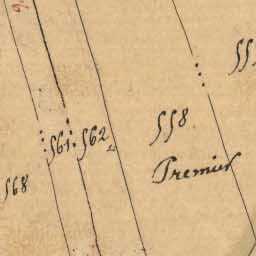 558
561. 562
Premier
568